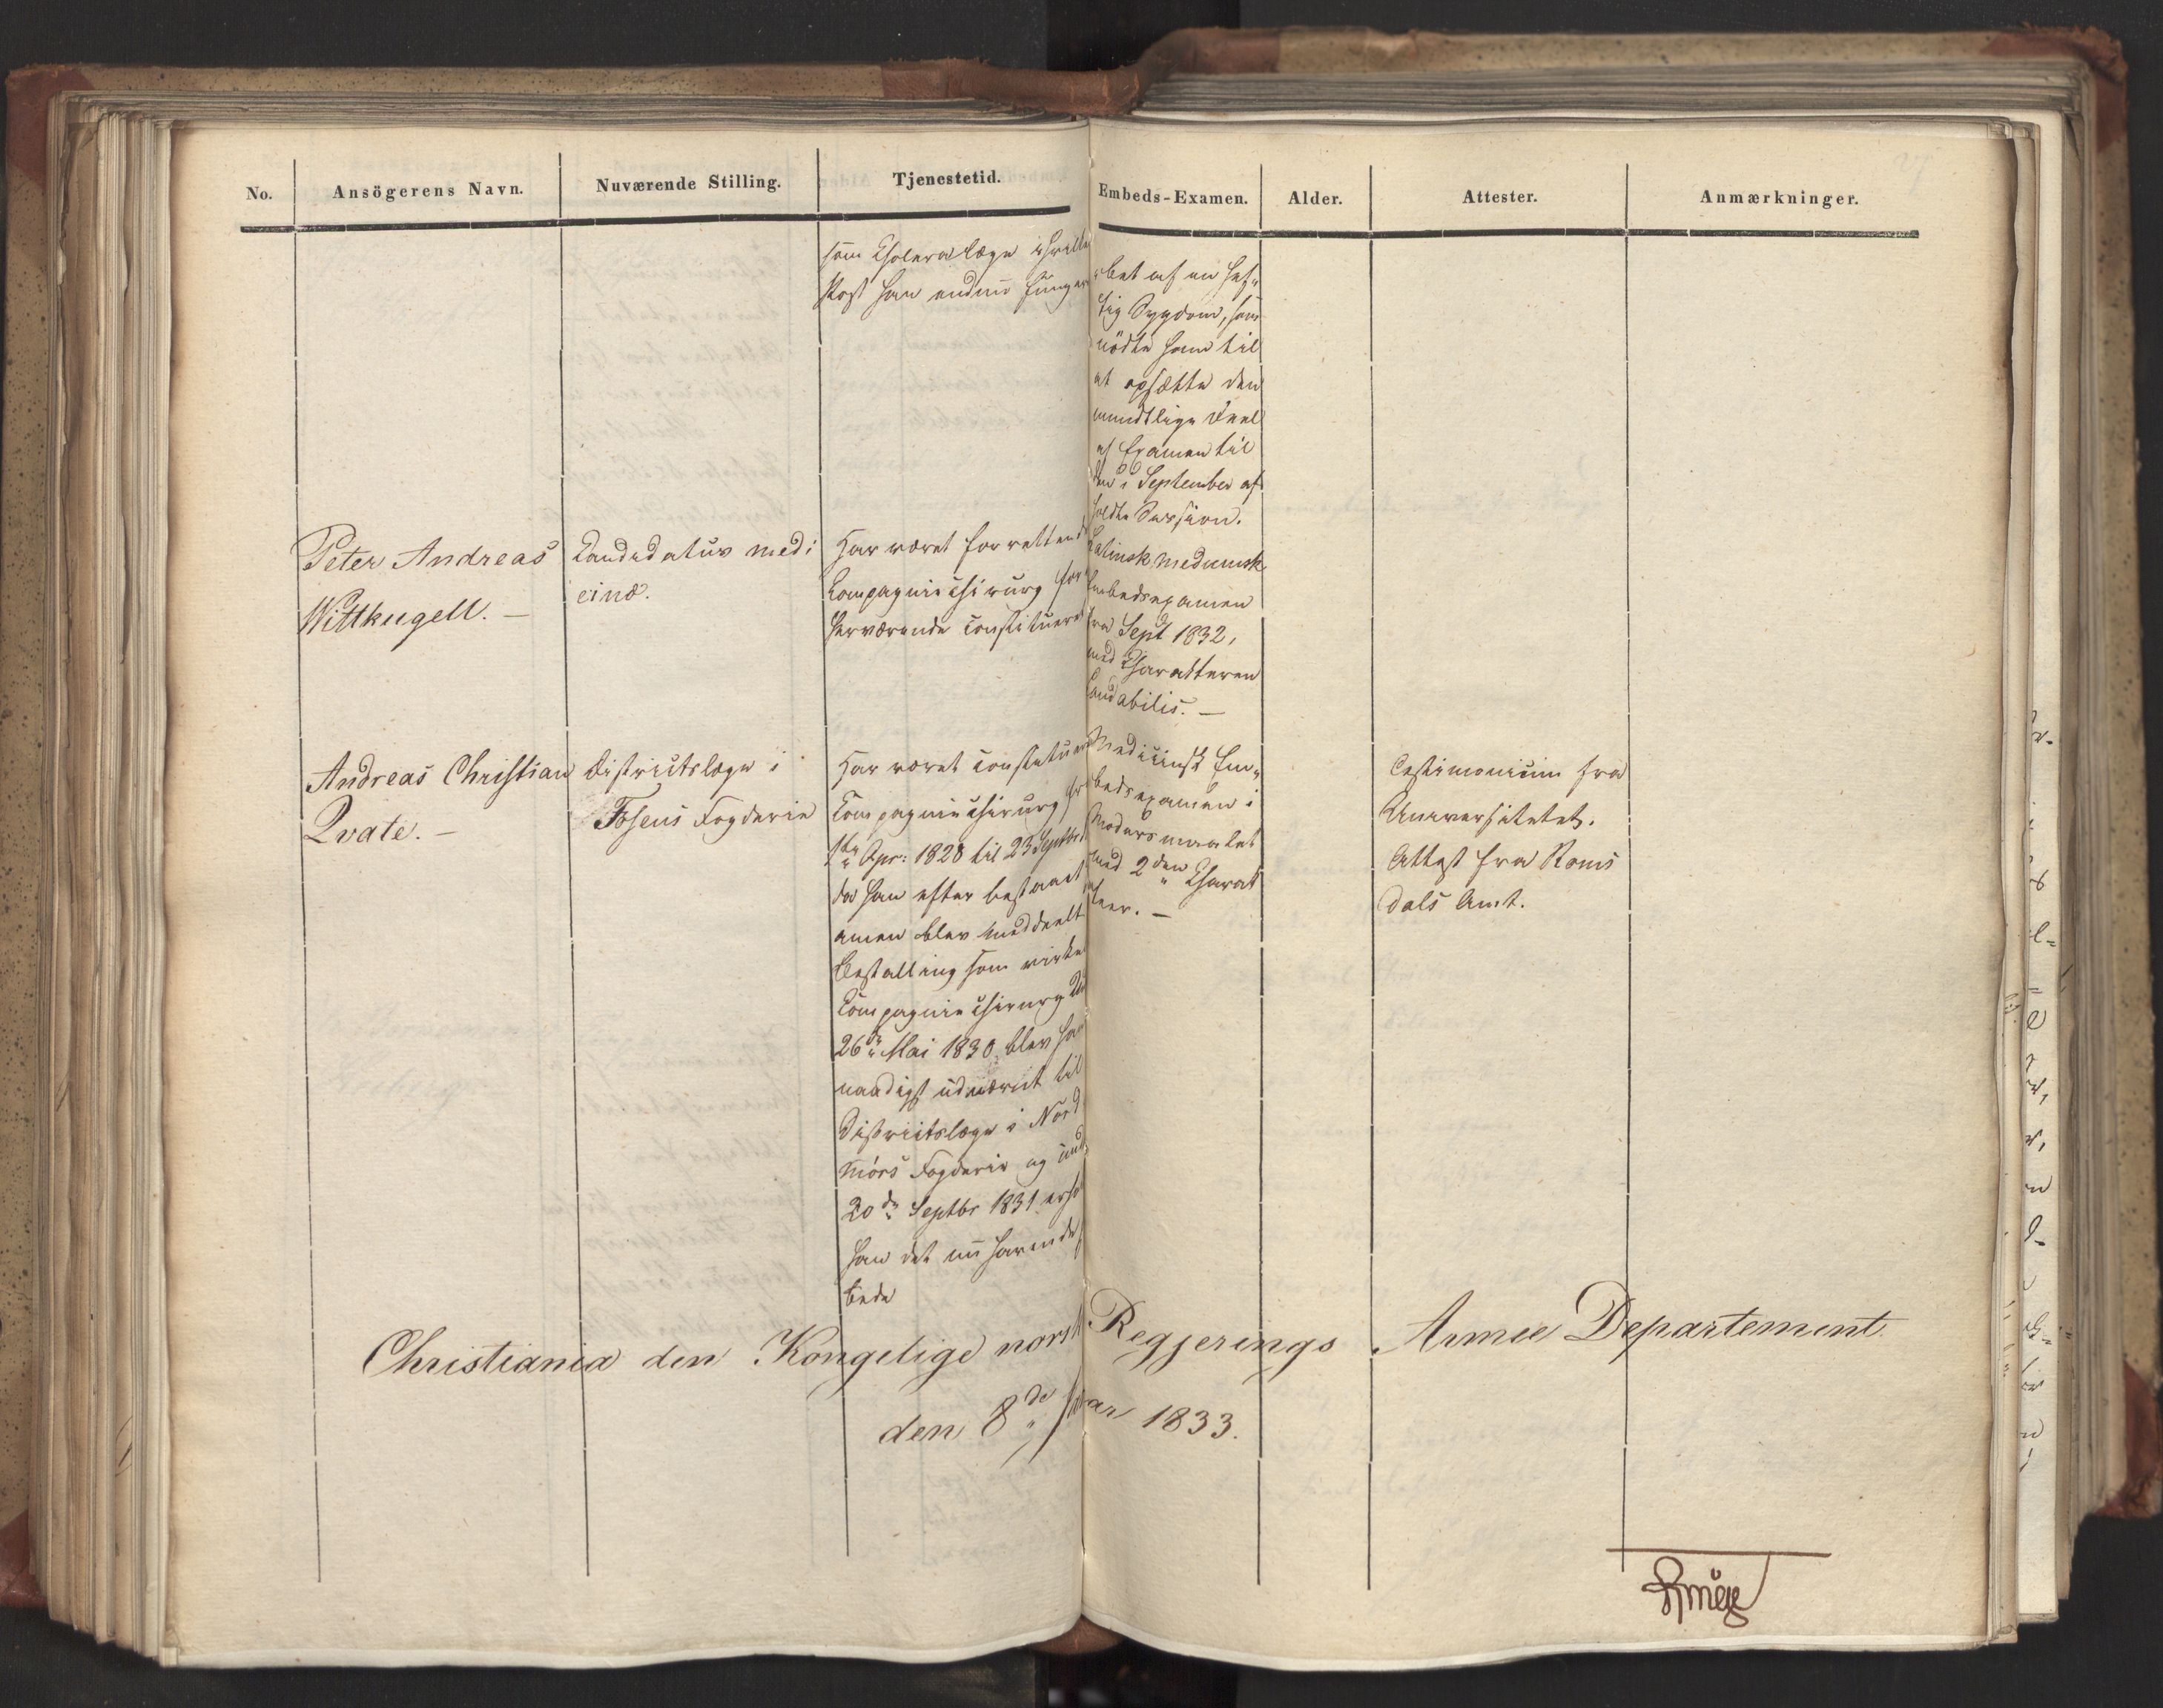 No.
Ansögerens Navn.
Nuværende Stilling.
Tjenestetid.
Embeds-Examen.
Alder.
Attester.
Anmærkninger.
som Choleralæge i hvilke
Post han endnu funger
bet af en hef„
tig Sygdom, som
nödte ham til
at opsætte den
mundtlige Deel
af Examen til
den i September af
holdte Session.
Peter Andreas
Wittkugell. —
Candidatus medi
cinæ.
Har været forrettende
Compagniechirurg for
herværende constituered
Latinsk medicinsk
Embedsexamen
fra Sept 1832,
med Charakteren
laudabilis. —
Andreas Christian
Qvale. —
Districtslæge i
Fosens Fogderie
Har været constitue
Compagniechirurg fr
1ste Apr: 1828 til 23 Septbr
da han efter bestaaet
amen blev meddeelt
Bestalling som virke
Compagniechirurg
26de Mai 1830 blev ha
naadigst udnævnt til
Districtslæge i Nord
mörs Fogderie og und
20de Septbr 1831 erho
han det nu havende
bede
Medicinsk Em„
bedsexamen i
Modersmaalet
med 2den Charak
teer. —
Testimonium fra
Universitetet.
Attest fra Roms
dals Amt.
Christiania den Kongelige norsk Regjerings Armee Departement
den 8de 1833.